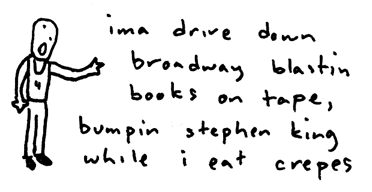 ima drive down
broadway blastin
books on tape,
bumpin stephen king
while i eat crepes
4